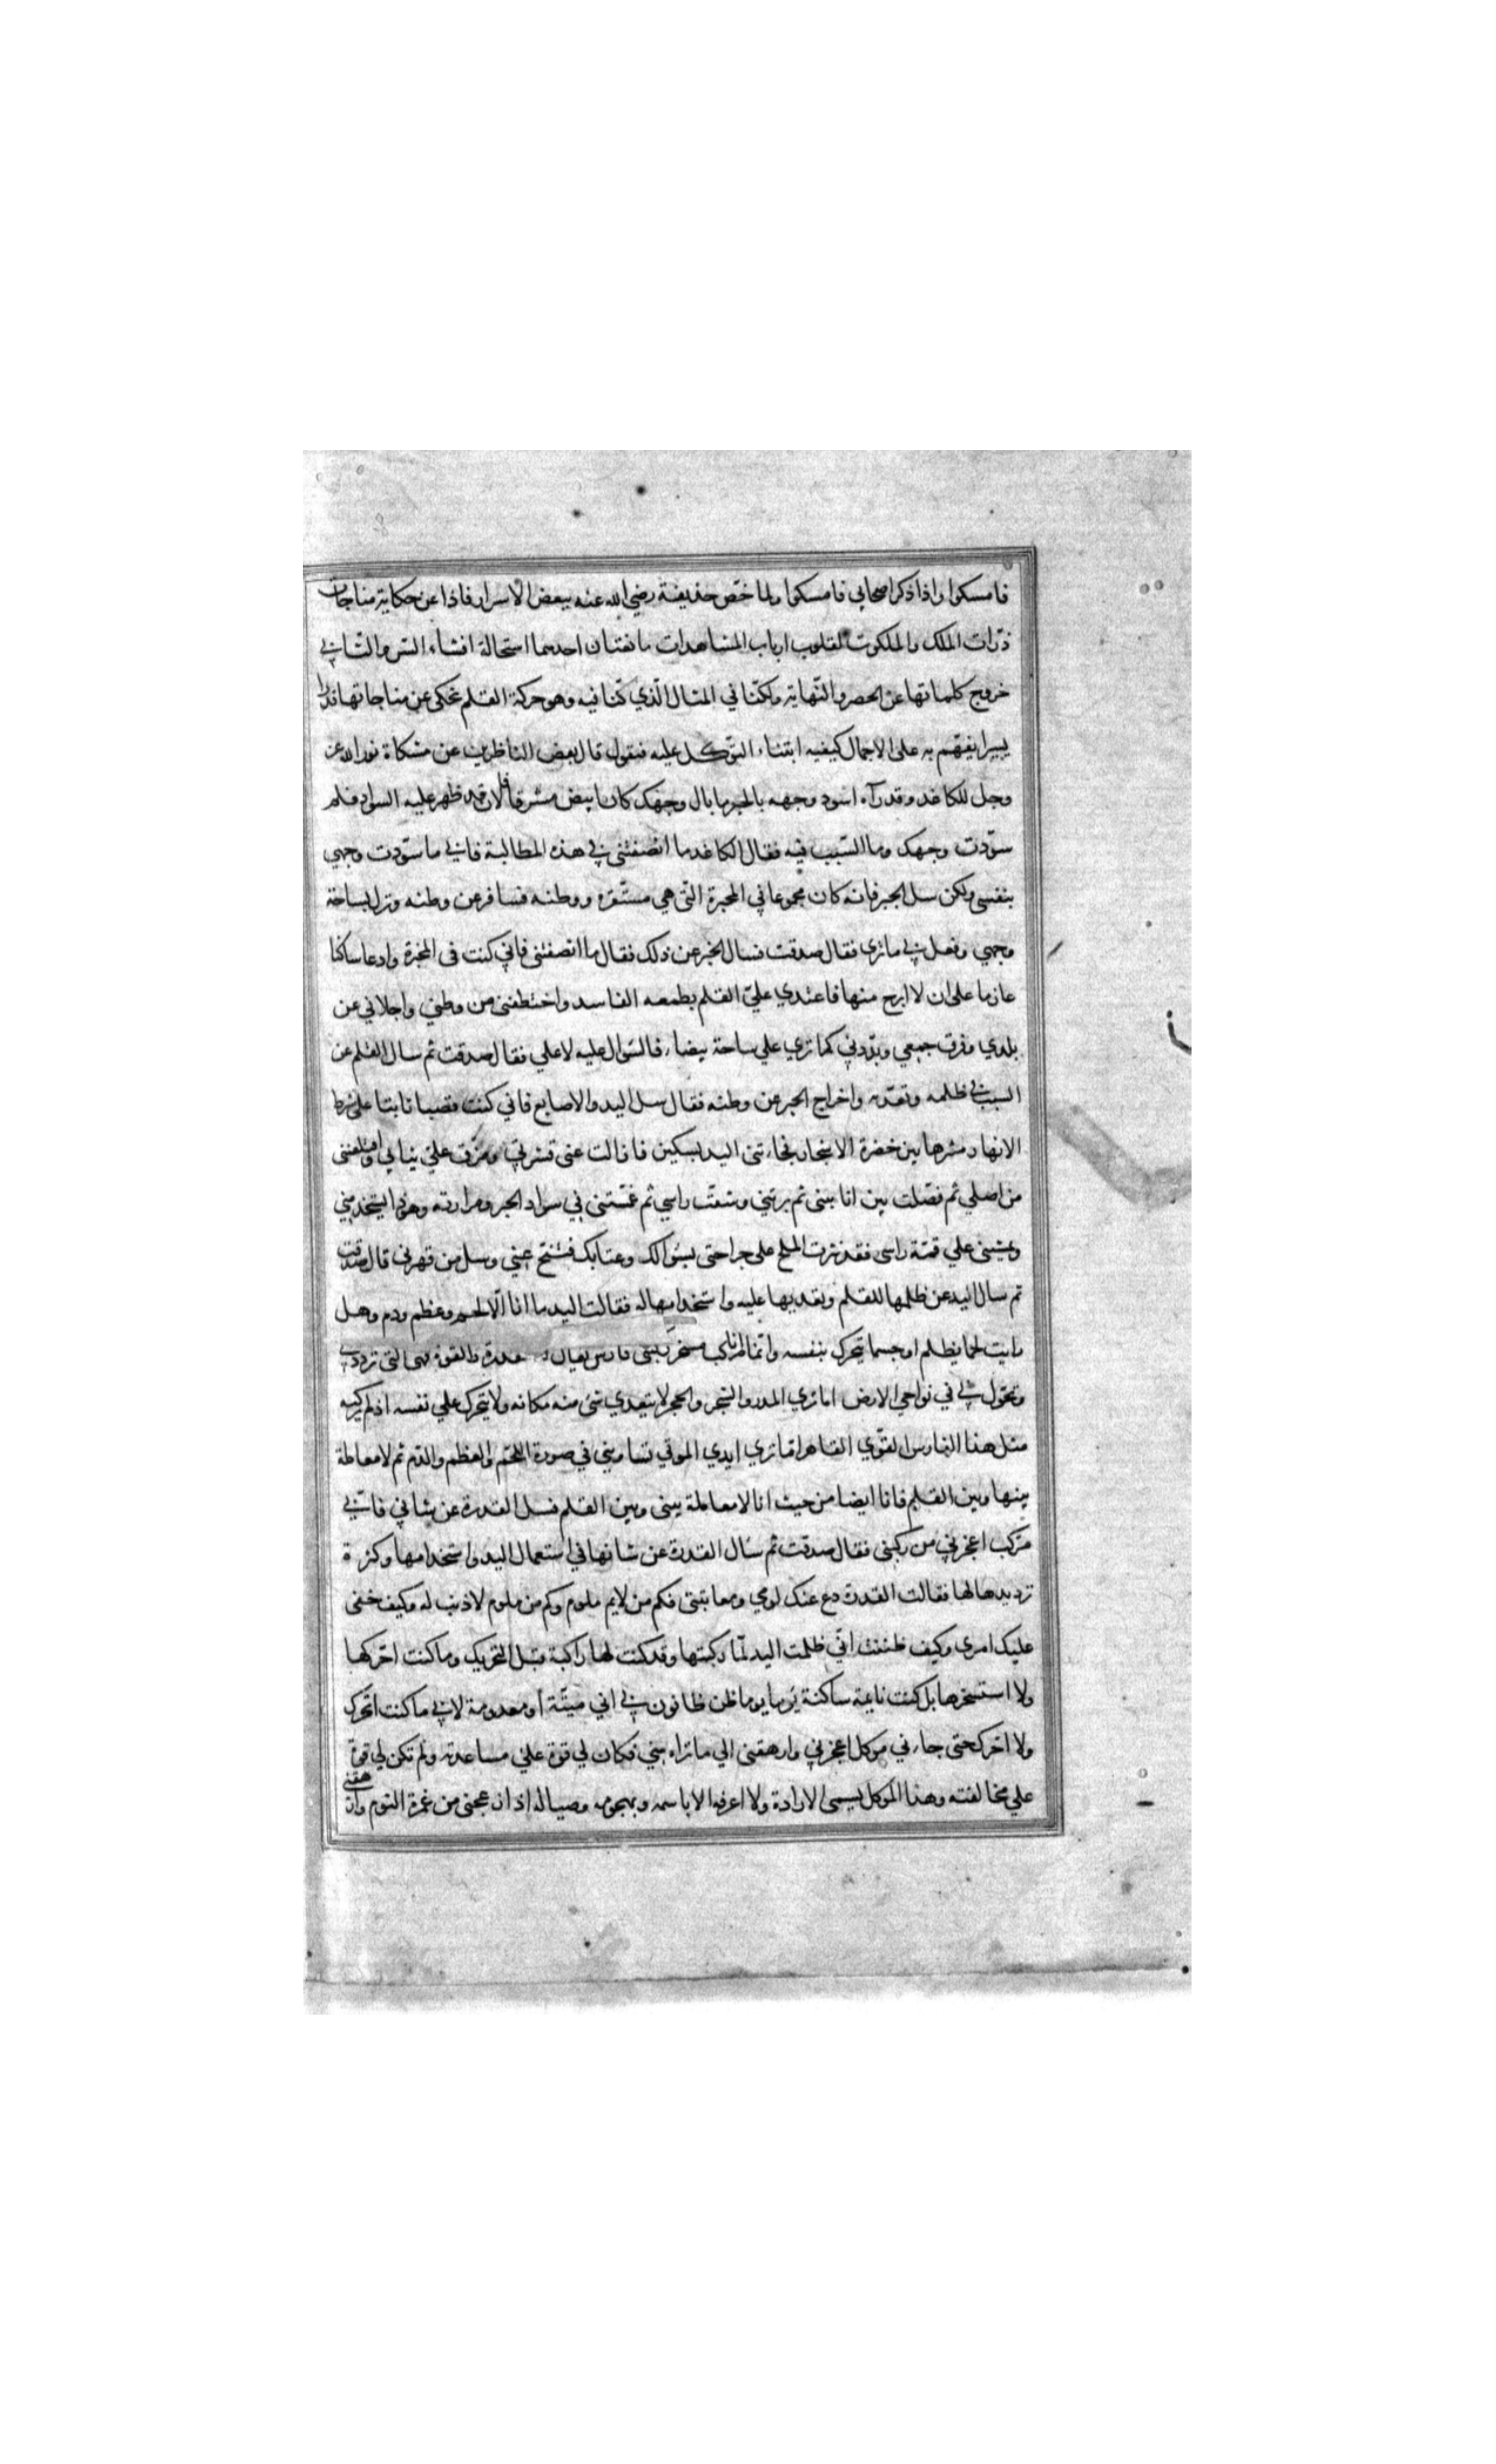 فامسكوا واذا ذكر اصحابي فامسكوا ولما خصّ حذيفة رضي الله عنه ببعض الاسرار فاذا عن حكاية مناجات
ذرّات الملك والملكوت لقلوب ارباب المشاهدات مانعتان احدهما استحالة افشاء السّر والثّاني
خروج كلماتها عن الحصر والنّهاية ولكنّا في المثال الّذي كنّا فيه وهو حركة القلم نحكى عن مناجاتها قدرا
يسيرا يفهّم به على الاجمال كيفيه ابتناء التوّكل عليه فنقول قال بعض الناظرين عن مشكاة نور الله عز
وجل للكاغد وقد رآه اسود وجهه بالحبر ما بال وجهك كان ابيض مشرقا فالان قد ظهر عليه السواد فلم
سوّدت وجهك وما السّبب فيه فقال الكاغد ما انصفتنى في هذه المطالبة فاني ما سوّدت وجهي
بنفسى ولكن سل الحبر فانه كان مجموعا في المحبرة الّتى هي مستقره ووطنه فسافر عن وطنه ونزل بساحة
وجهي وفعل بي ما ترى فقال صدقت فسال الحبر عن ذلك فقال ما انصفتنى فاني كنت فى المحبرة وادعا ساكنا
عازما على ان لا ابرح منها فاعتدي عليّ القلم بطمعه الفاسد واختطفنى من وطني واجلاني عن
بلدي وفرق جمعي وبدّدني كما تري علي ساحة بيضاء فالسّوال عليه لا علي فقال صدقت ثم سال القلم عن
السبب في ظلمه وتعدّيه واخراج الحبر عن وطنه فقال سل اليد والاصابع فاني كنت قصبا نابتا على شط
الانهار منزها بين خضرة الاشجار فجاءتنى اليد بسكين فازالت عنى قشري ومزّقت علىّ ثيابي واقتلعتنى
من اصلي ثم فصّلت بين انابيبى ثم برتني وشقّت راسي ثم غمّستنى في سواد الحبر ومرارته وهوذا يستخدمني
ويمشينى علي قمّة راسى فقد نثرت الملح على جراحتى بسّوالك وعتابك فتنح عني وسل من قهرنى قال صدقت
ثم سال اليد عن ظلمها للقلم وتعديها عليه واستخدامها له فقالت اليد ما انا الّا لحم وعظم ودم وهل
رايت لحما يظلم او جسما يتحرك بنفسه وانّما انا مركب مسخر ركبنى فارس يقال له القدرة والقوة فهى التى تردد بي
وتجول بي في نواحي الارض اما تري المدر والشجر والحجر لا يتعدي شئ منه مكانه ولا يتحرك علي نفسه اذ لم يركبه
مثل هذا الفارس القوّي القاهر اما تري ايدي الموتي تساويني في صورة اللحّم والعظم والدّم ثم لا معاملة
بينها وبين القلم فانا ايضا من حيث انا لا معاملة بينى وبين القلم فسل القدرة عن شاني فانّي
مركب اعجزني من ركبنى فقال صدقت ثم سأل القدرة عن شانها في استعمال اليد واستخدامها وكثرة
ترديدها لها فقالت القدرة دع عنك لومي ومعاتبتى فكم من لايم ملوم وكم من ملوم لا ذنب له وكيف خفى
عليك امرى وكيف ظننت انّي ظلمت اليد لمّا ركبتها وقد كنت لها راكبة قبل التحريك وما كنت احّركها
ولا استسخرها بل كنت نايمة ساكنة نوما يوما ظن ظانون بي اني ميّتة او معدومة لاني ما كنت اتحرك
ولا احّرك حتى جاءني موكل اعجزني وارهقنى الي ما تراه مني فكان لي قوّة عليّ مساعدته ولم تكن لي قوة
علي مخالفته وهذا الموكل يسمى الارادة ولا اعرفه الا باسمه وبهجومه وصياله اذ ازعجنى من غمرة النوم وارهقنى